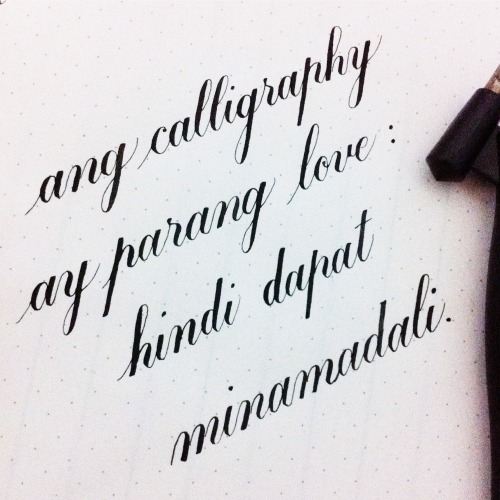 ang calligraphy
ay parang love:
hindi dapat
minamadali.